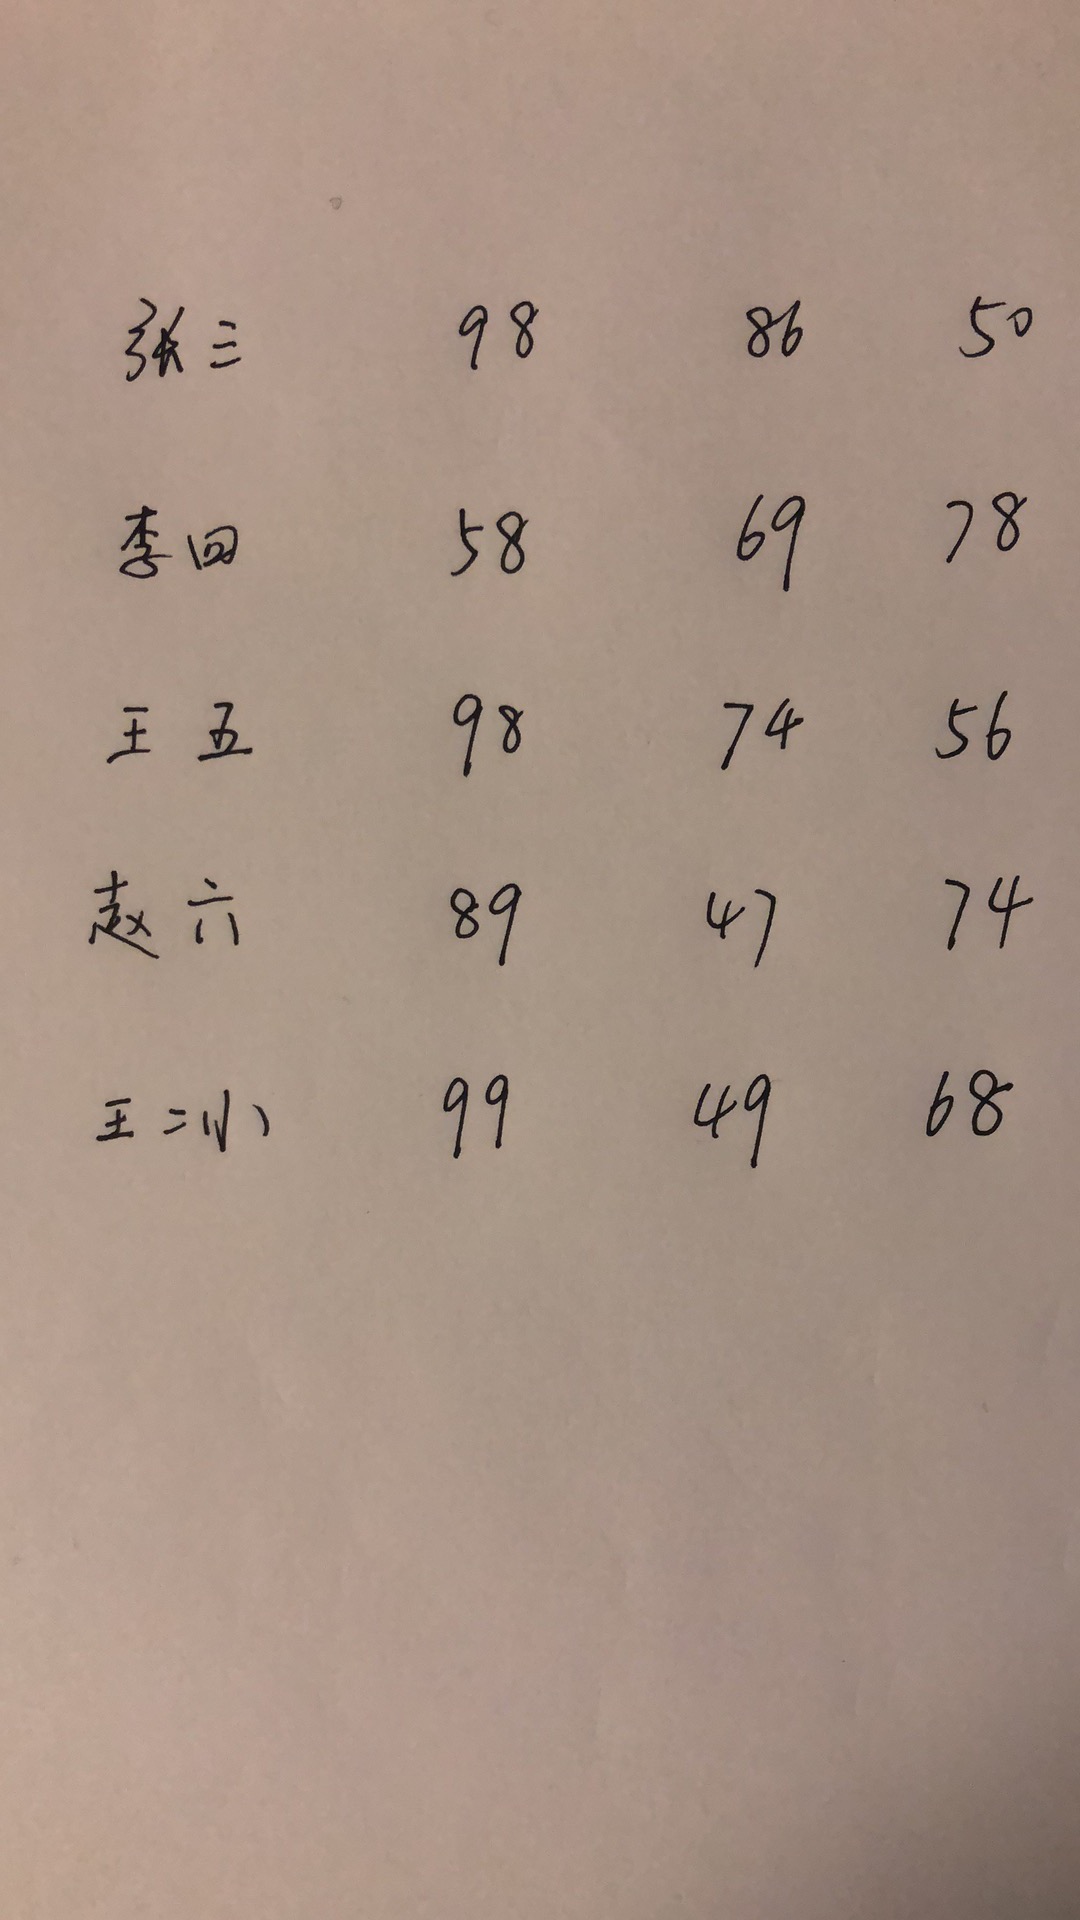 张三 98 86 50
李四 58 69 78
王五 98 74 56
赵六 89 47 74
王二小 99 49 68